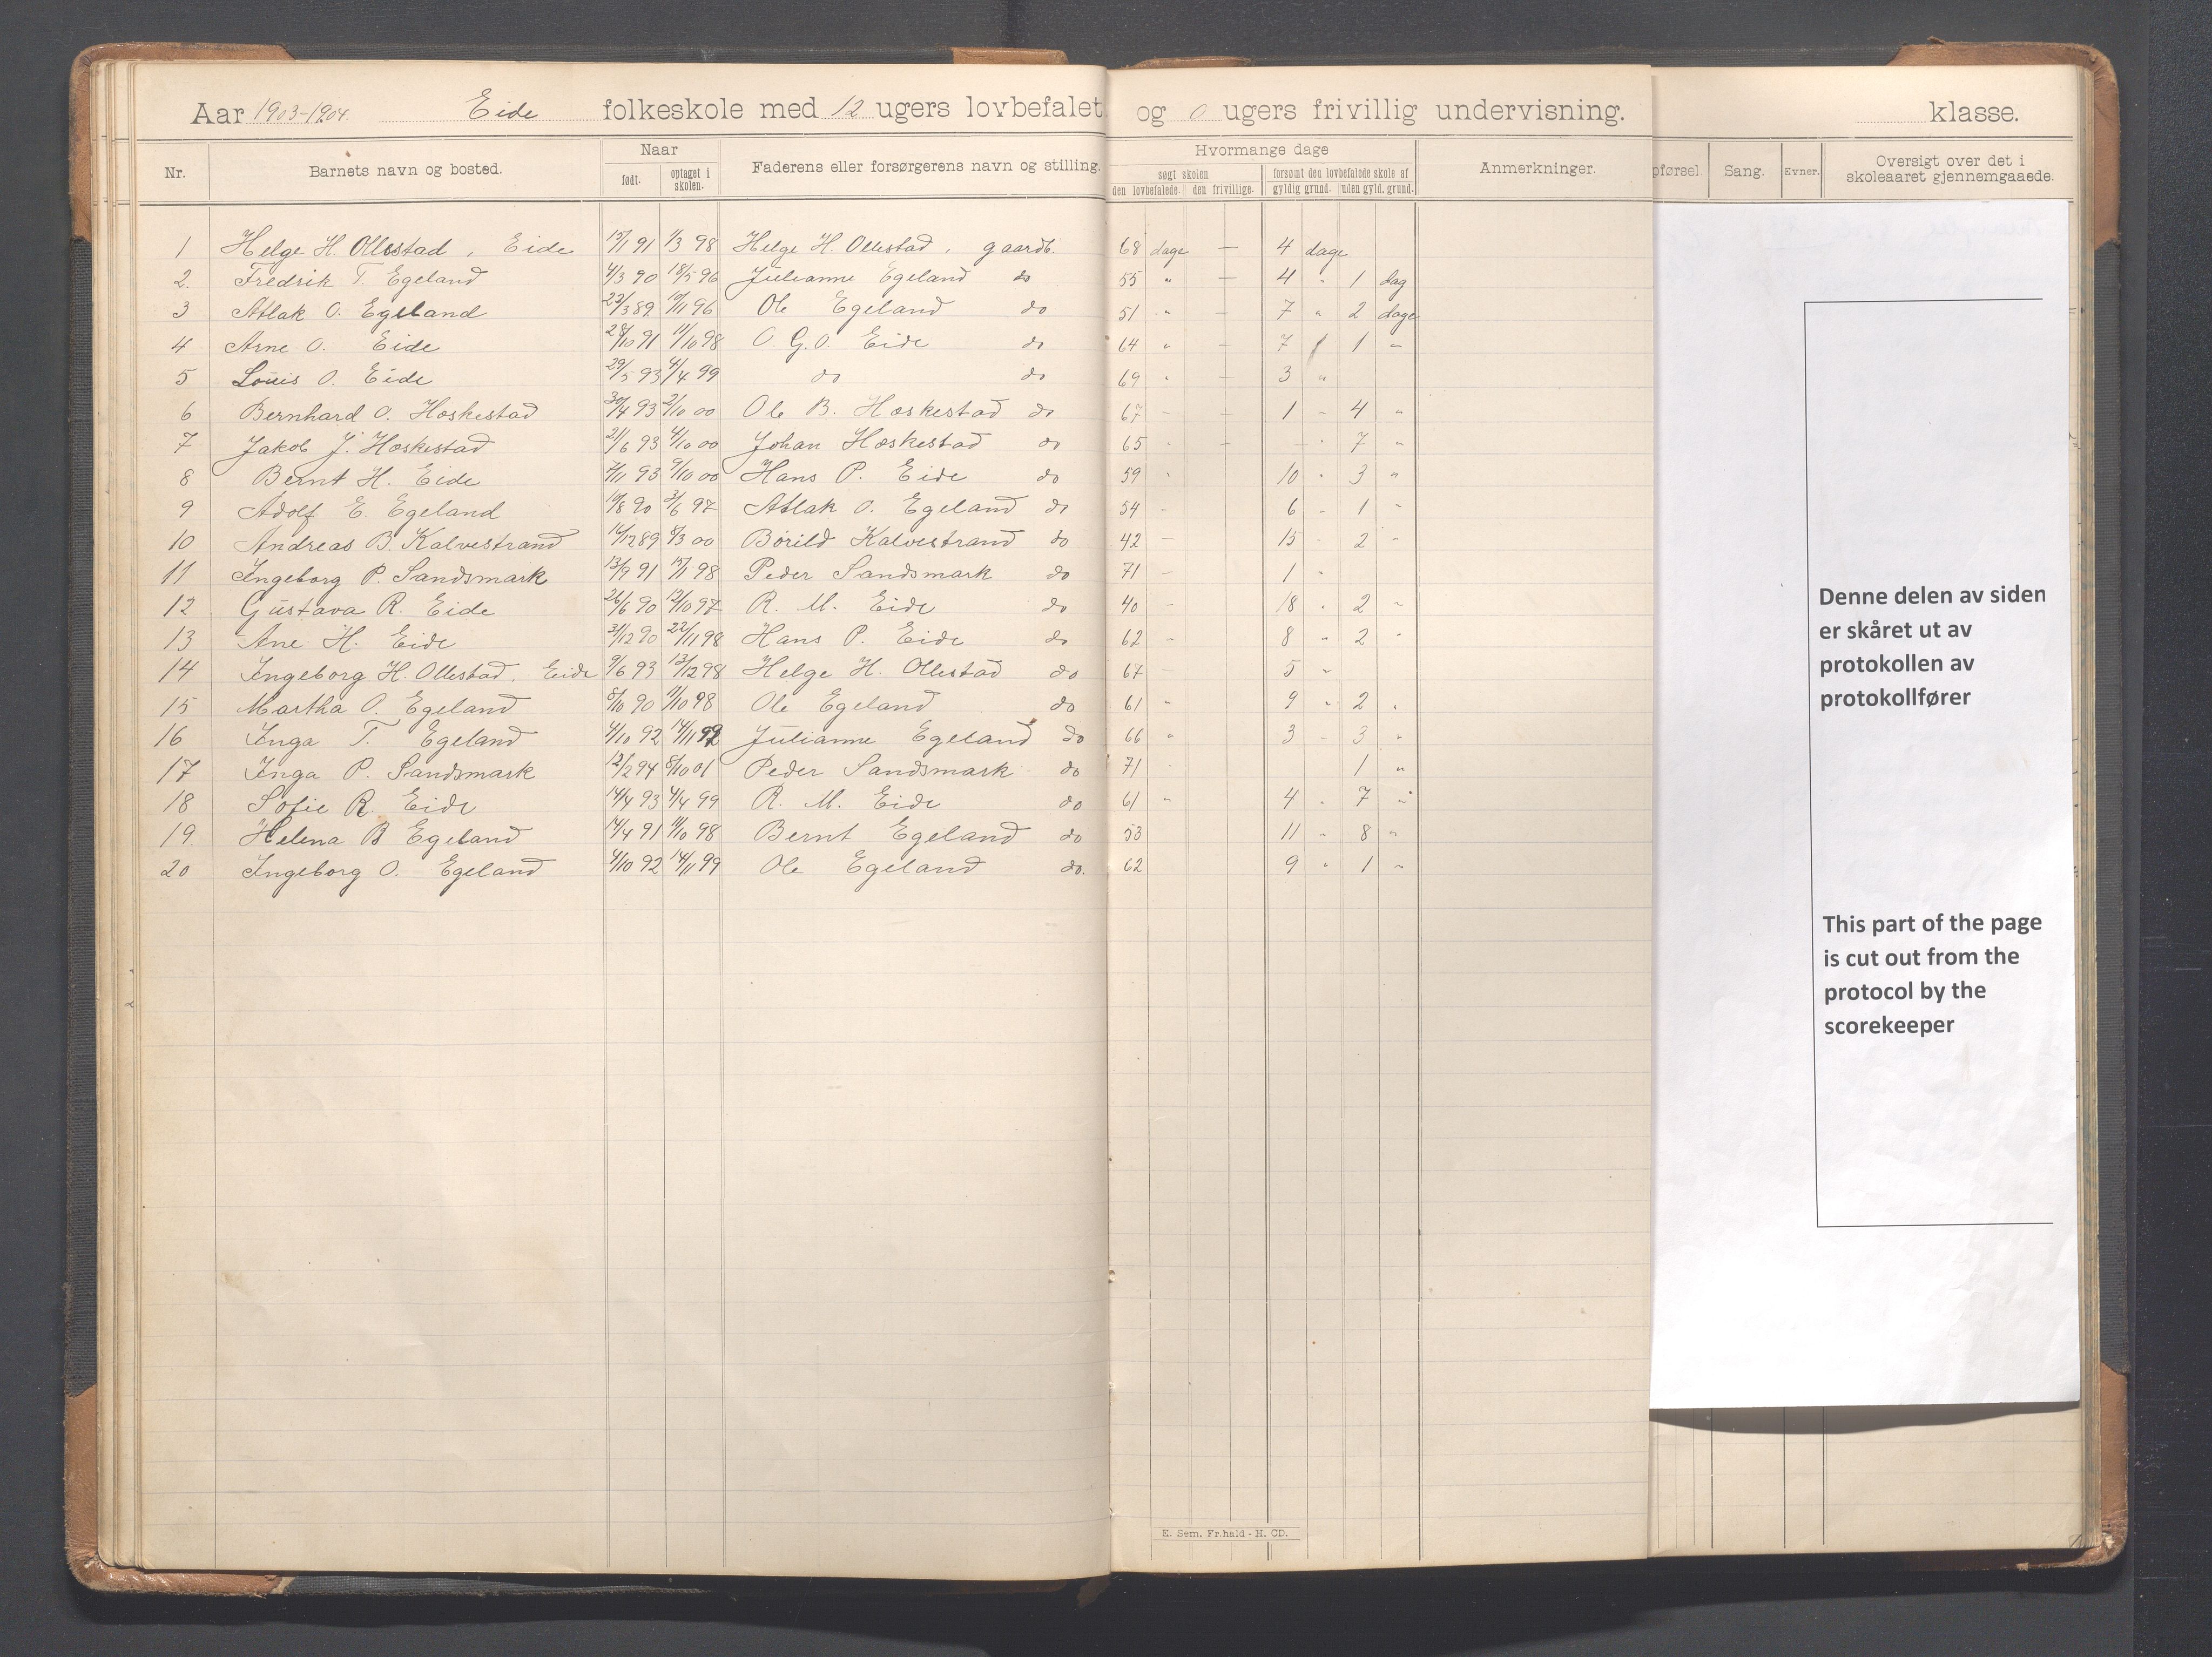 Aar 1903-1904. Eide folkeskole med 12 ugers lovbefalet og 0 ugers frivillig undervisning. klasse.
Nr. Barnets navn og bosted. Naar født. optaget i skolen. Faderens eller forsørgerens navn og stilling. Hvormange dage søgt skolen den lovbefalede. den frivillige. forsømt den lovbefalede skole af gyldig grund. uden gyld. grund. Anmerkninger. pførsel. Sang. Evner. Oversigt over det i skoleaaret gjennemgaaede.
1 Helge H. Ollestad, Eide 15/1 91 1/3 98 Helge H. Ollestad, gaardb. 68 dage — 4 dage
2. Fredrik T. Egeland 4/3 90 18/5 96 Julianne Egeland do 55 " — 4 " 1 dag
3 Atlak O. Egeland 22/3 89 10/11 96 Ole Egeland do 51 " — 7 " 2 dage
4 Arne O. Eide 28/10 91 11/10 98 O. G. O. Eide do 64 " — 7 " 1 "
5 Louis O. Eide 29/5 93 4/4 99 do do 69 " — 3 "
6 Bernhard O. Hoskestad 30/4 93 2/10 00 Ole B. Hoskestad do 67 - — 1 - 4 "
7 Jakob J. Hoskestad 21/6 93 4/10 00 Johan Hoskestad do 65 " — — " 7 "
8 Bernt H. Eide 7/11 93 9/10 00 Hans P. Eide do 59 " 10 " 3 "
9 Adolf E. Egeland 10/8 90 3/6 97 Atlak O. Egeland do 54 - 6 - 1 -
10 Andreas B. Kalvestrand 16/12 89 8/3 00 Børild Kalvestrand do 42 - 15 - 2 -
11 Ingeborg P. Sandsmark 13/9 91 15/11 98 Peder Sandsmark do 71 - 1 "
12 Gustava R. Eide 26/6 90 12/10 97 R. M. Eide do 40 - 18 " 2 "
13 Ane H. Eide 31/12 90 22/11 98 Hans P. Eide do 62 " 8 " 2 "
14 Ingeborg H. Ollestad, Eide 9/6 93 13/12 98 Helge H. Ollestad do 67 - 5 "
15 Martha O. Egeland 8/10 90 11/10 98 Ole Egeland do 61 " 9 " 2 "
16 Inga T. Egeland 4/10 92 14/11 99 Julianne Egeland do 66 " 3 - 3 "
17 Inga P. Sandsmark 12/2 94 8/10 01 Peder Sandsmark do 71 " 1 "
18 Sofie R. Eide 14/4 93 4/4 99 R. M. Eide do 61 " 4 " 7 "
19. Helena B Egeland 14/4 91 11/10 98 Bernt Egeland do 53 11 - 8 "
20 Ingeborg O. Egeland 4/10 92 14/11 99 Ole Egeland do. 62 9 " 1 "
Denne delen av siden
er skåret ut av
protokollen av
protokollfører
This part of the page
is cut out from the
protocol by the
scorekeeper
E. Sem. Fr.hald - H. CD.